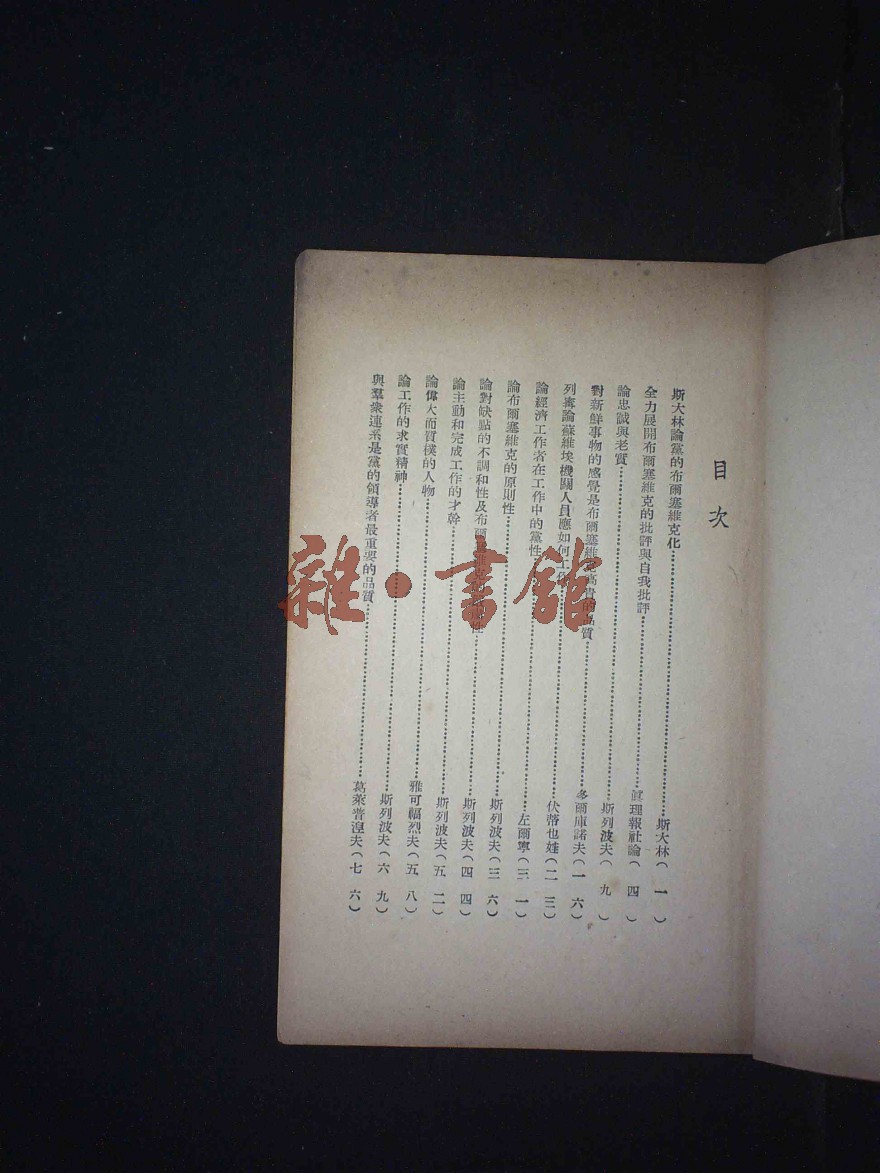 目次
斯大林論黨的布爾塞維克化……斯大林(一)
全力展開布爾塞維克的批評與自我批評……眞理報社論(四)
論忠誠與老實……斯列波夫(九)
對新鮮事物的感覺是布爾塞維克高貴的品質……多爾庫諾夫(一六)
列寧論蘇維埃機關人員應如何工作……伏蓉也娃(二三)
論經濟工作者在工作中的黨性……左爾寧(三一)
論布爾塞維克的原則性……斯列波夫(三六)
論對缺點的不調和性及布爾塞維克 性……斯列波夫(四四)
論主動和完成工作的才幹……斯列波夫(五二)
論偉大而質樸的人物……雅可福烈夫(五八)
論工作的求實精神……斯列波夫(六九)
與羣衆連系是黨的領導者最重要的品質……葛萊普湼夫(七六)
雜·書館